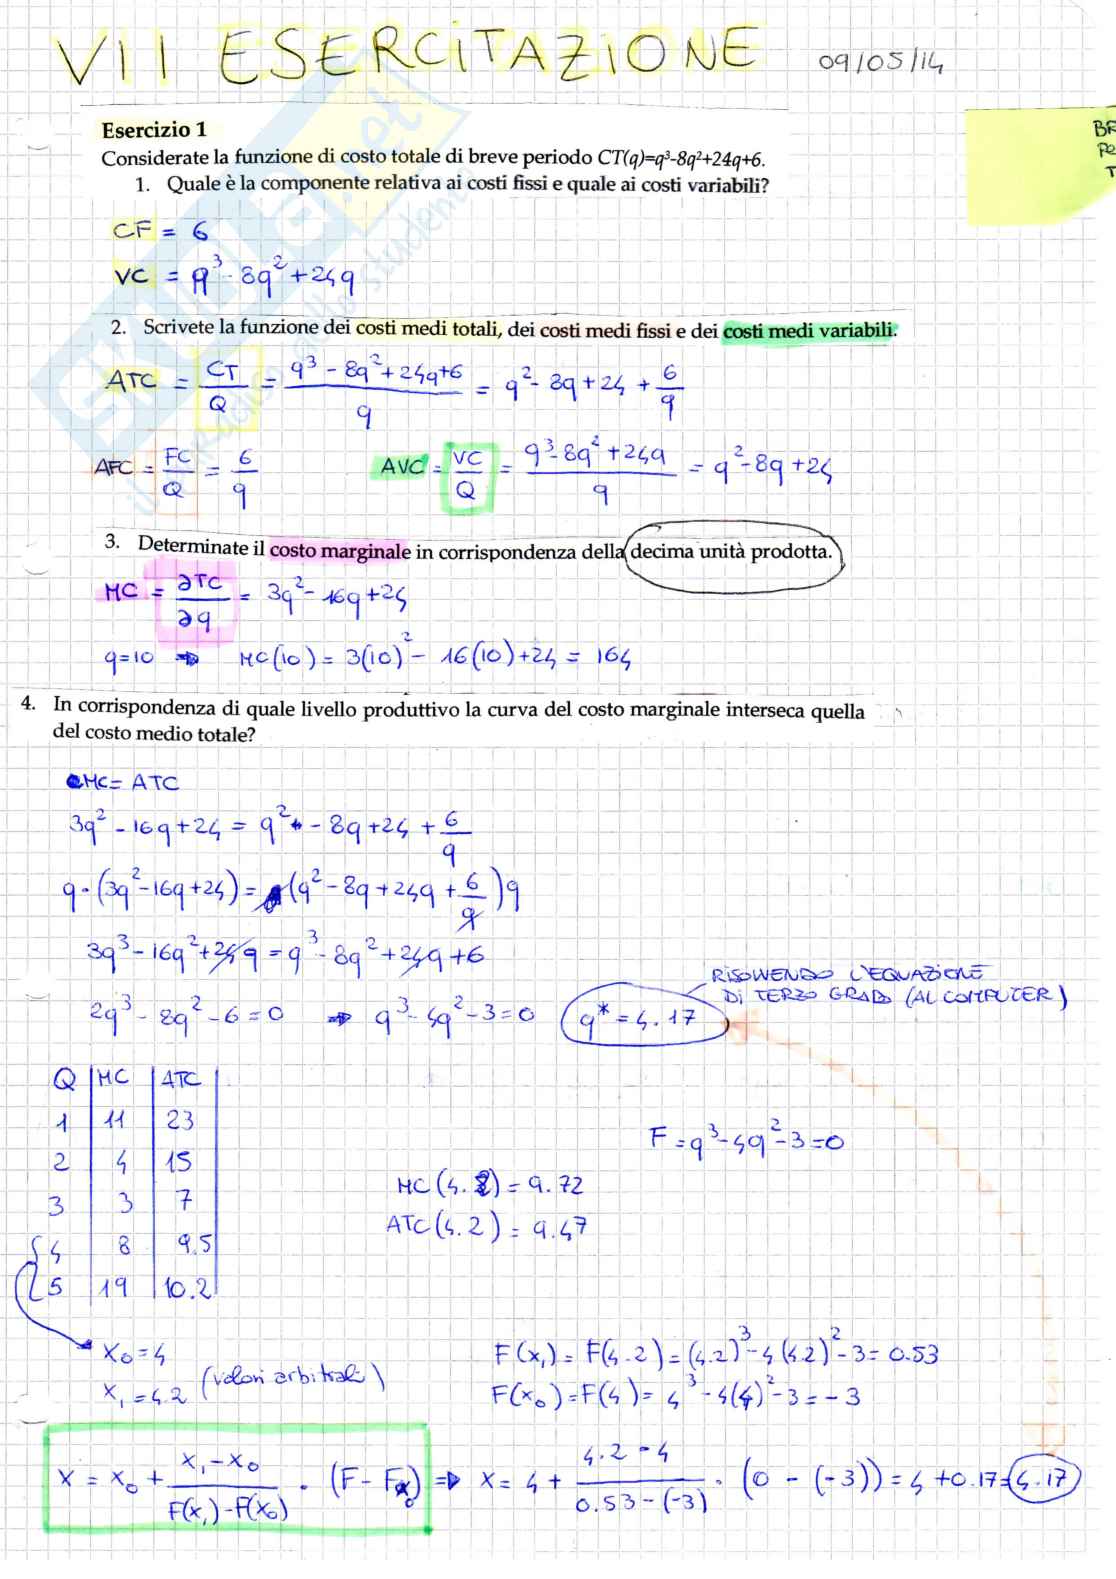 VII ESERCITAZIONE 09/05/14
Esercizio 1
Considerate la funzione di costo totale di breve periodo CT(q)=q³-8q²+24q+6.
1. Quale è la componente relativa ai costi fissi e quale ai costi variabili?
CF = 6
VC = q³ - 8q² + 24q
2. Scrivete la funzione dei costi medi totali, dei costi medi fissi e dei costi medi variabili.
ATC = CT/Q = (q³ - 8q² + 24q + 6)/q = q² - 8q + 24 + 6/q
AFC = FC/Q = 6/q AVC = VC/Q = (q³ - 8q² + 24q)/q = q² - 8q + 24
3. Determinate il costo marginale in corrispondenza della decima unità prodotta.
MC = ∂TC/∂q = 3q² - 16q + 24
q=10 ⇒ MC(10) = 3(10)² - 16(10) + 24 = 164
4. In corrispondenza di quale livello produttivo la curva del costo marginale interseca quella
del costo medio totale?
MC = ATC
3q² - 16q + 24 = q² - 8q + 24 + 6/q
q·(3q² - 16q + 24) = (q² - 8q + 24q + 6/q)q
3q³ - 16q² + 24q = q³ - 8q² + 24q + 6
RISOLVENDO L'EQUAZIONE
DI TERZO GRADO (AL COMPUTER)
2q³ - 8q² - 6 = 0 ⇒ q³ - 4q² - 3 = 0 q* = 4.17
Q MC ATC
1 11 23
2 4 15
3 3 7
4 8 9.5
5 19 10.2
F = q³ - 4q² - 3 = 0
MC(4.2) = 9.72
ATC(4.2) = 9.47
x₀ = 4
x₁ = 4.2 (valori arbitrali)
F(x₁) = F(4.2) = (4.2)³ - 4(4.2)² - 3 = 0.53
F(x₀) = F(4) = 4³ - 4(4)² - 3 = -3
x = x₀ + (x₁ - x₀)/(F(x₁) - F(x₀)) · (F - Fx₀) ⇒ x = 4 + (4.2 - 4)/(0.53 - (-3)) · (0 - (-3)) = 4 + 0.17 = 4.17